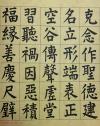 克念作聖德建
名立形端表正
空谷傳聲虛堂
習聽禍因惡積
福緣善慶尺璧